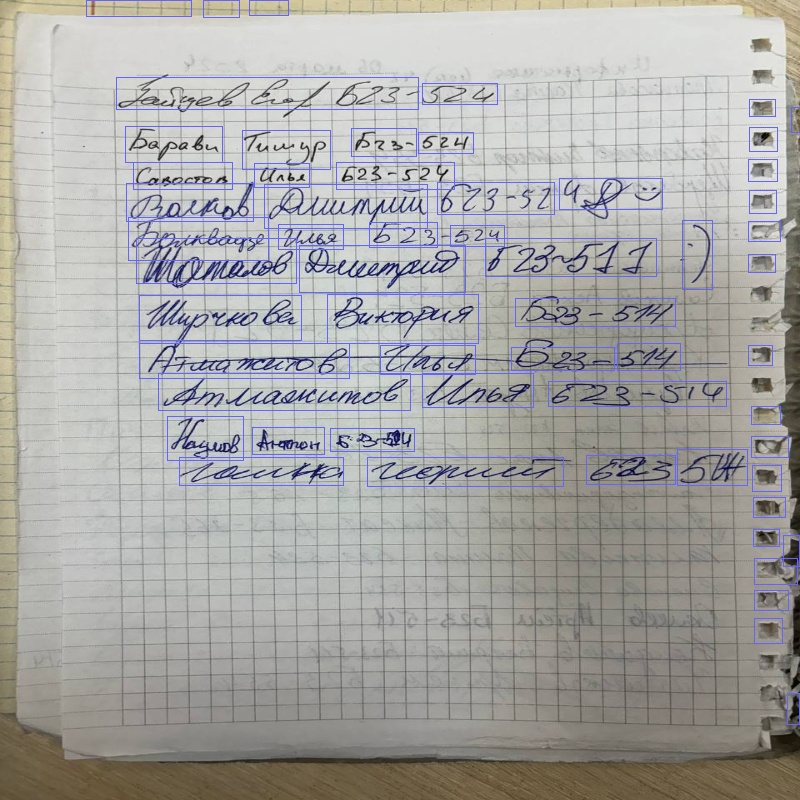 Зайцев Егор Б23-524
Барави Тимур Б23-524
Савостов Илья Б23-524
Волков Дмитрий Б23-524
Болквадзе Илья Б23-524
Шоталов Дмитрий Б23-511 :)
Ширчкова Виктория Б23-514
Атмажитов Илья Б23-514
Атмажитов Илья Б23-514
Наумов Антон Б23-514
Б23 514